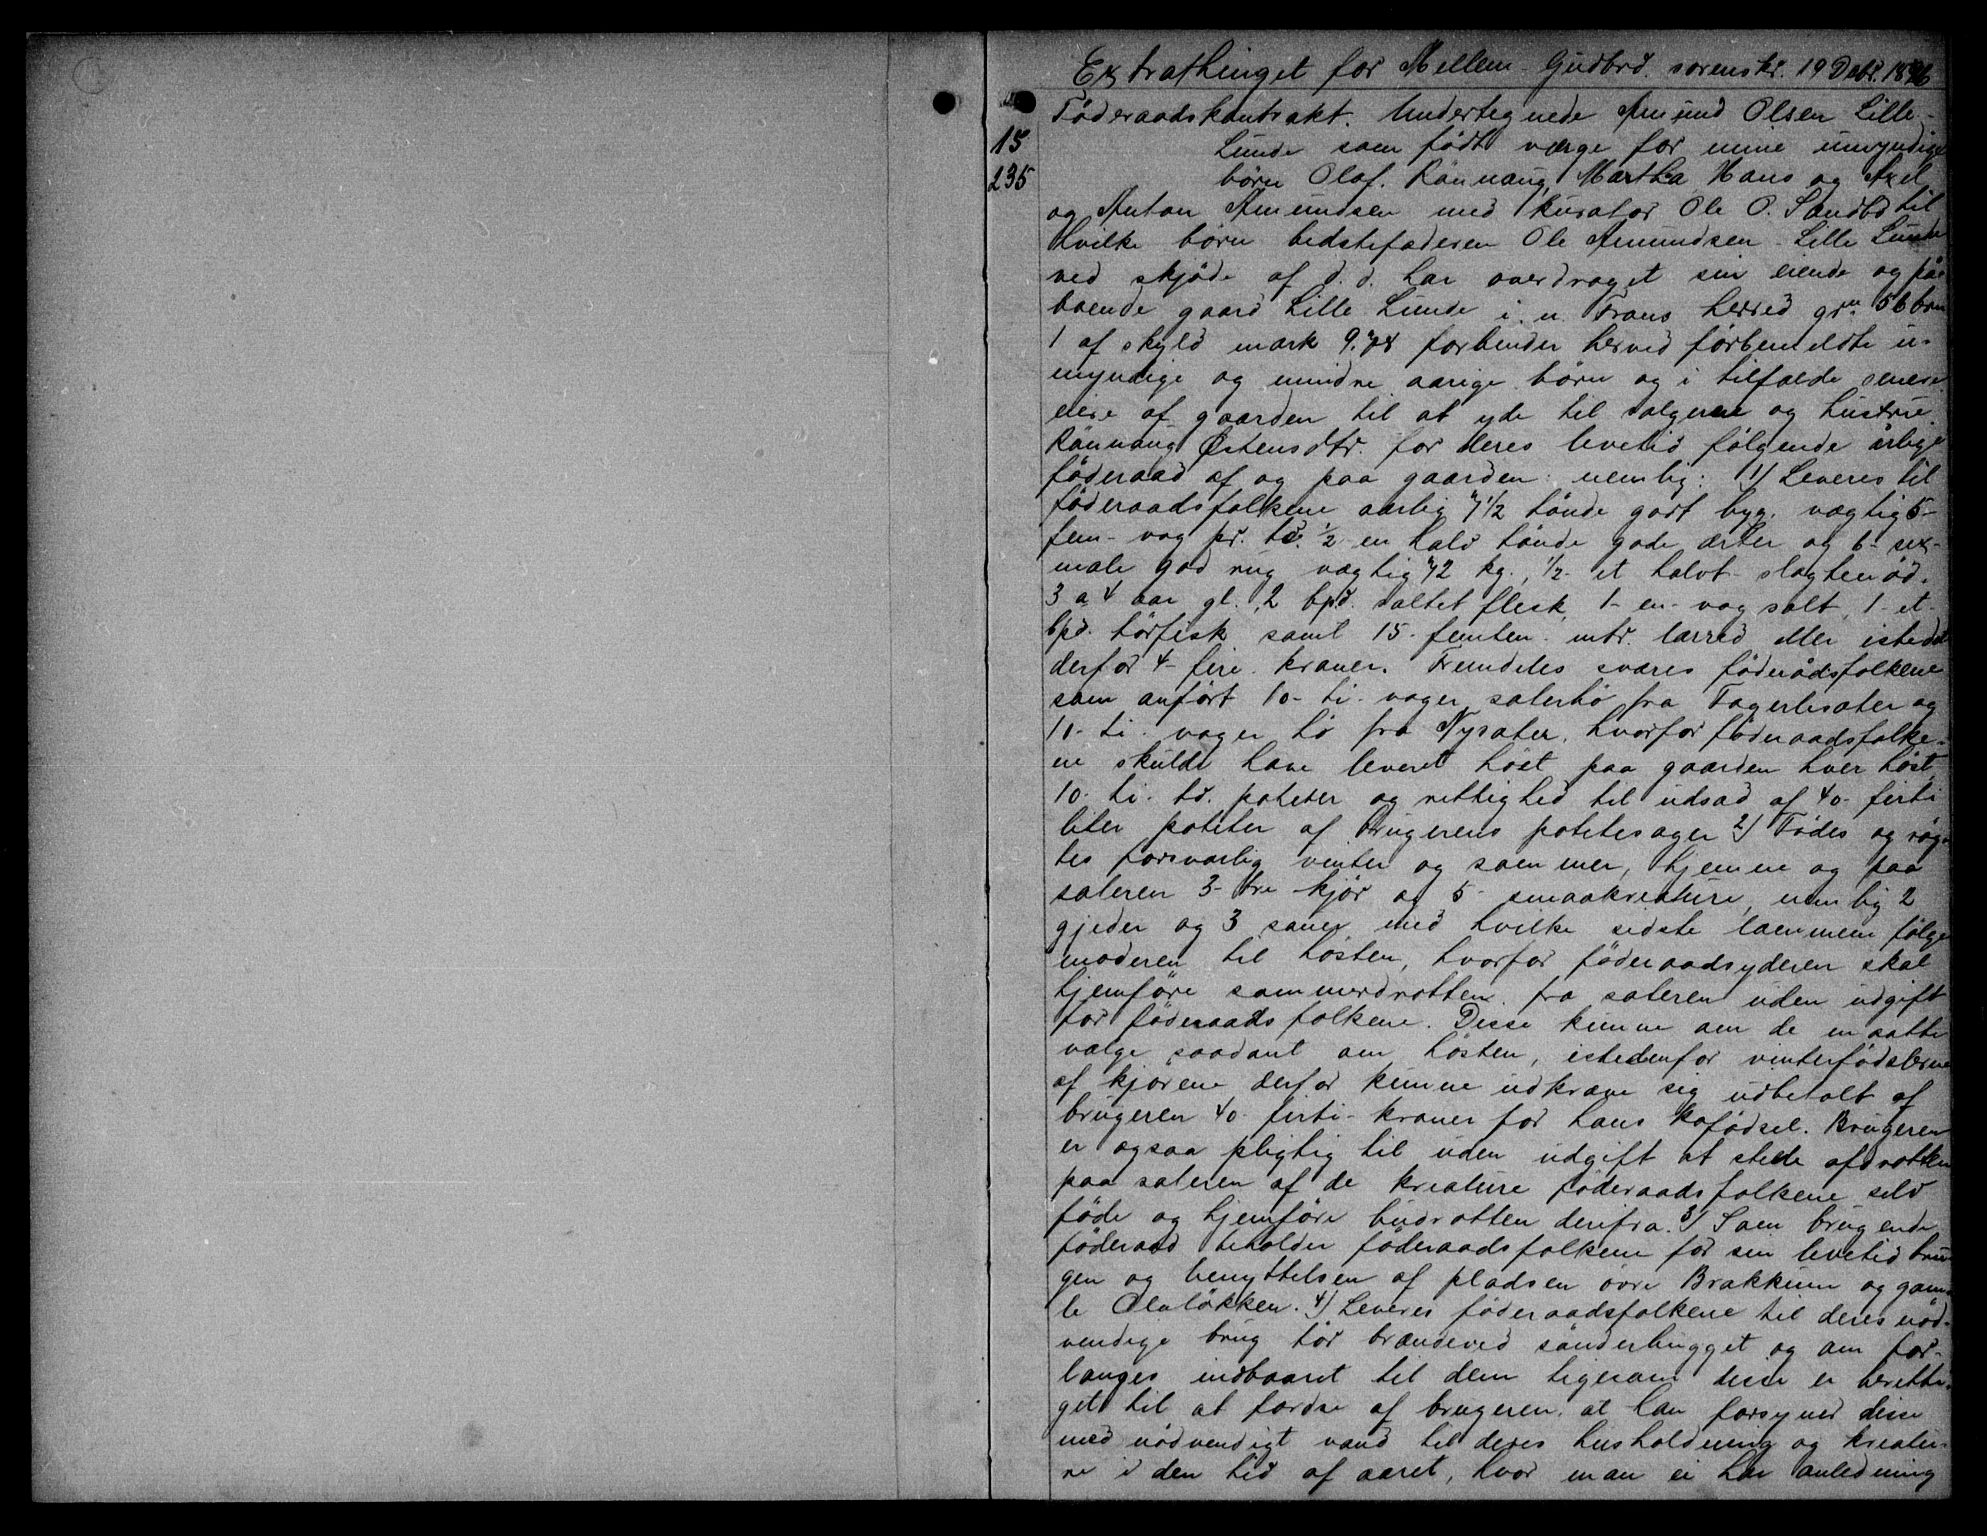 Extrathinget for Mellem-Gudbrd. sorenskr. 19 Debr. 1896
Föderaadskontrakt. Undertegnede Amund Olsen Lille-
15 Lunde som födt værge for mine umyndige
235 börn Olaf, Rönnaug, Martha, Hans og Axel
og Anton Amundsen med kurator Ole O. Sandbö til
hvilke börn bedstefaderen Ole Amundsen Lille Lunde
ved skjöde af d. d. har overdraget sin eiende og på-
boende gaard Lille Lunde i n. Frons herred grn. 56 brn
1 af skyld mark 9.78 forbinder herved förbemeldte u-
myndige og mindre aarige börn og i tilfælde senere
eiere af gaarden til at yde til sælgeren og hustrue
Rönnaug Østensdtr. for deres levetid fölgende årlige
föderaad af og paa gaarden: nemlig: 1) Leveres til
föderaadsfolkene aarlig 7 1/2 tönde godt byg. vægtig 5-
fem- vog pr. td. 1/2 en halv tönde gode ærter og 6- sex-
mæle god rug vægtig 72 kg., 1/2- et halvt- slagtenöd.
3 a 4 aar gl., 2 bpd. saltet flesk, 1- en- vog salt, 1- et-
bpd. törfisk samt 15- femten- mtr. lærred eller istedet
derfor 4- fire- kroner. Fremdeles svares föderådsfolkene
som anfört 10- ti- voger sæterhö fra Fagerlisæter og
10- ti- voger hö fra Nysæter, hvorfor föderaadsfolke-
ne skulde have leveret höet paa gaarden hver höst.
10- ti- td. poteter og rettighed til udsæd af 40- firti
liter poteter af brugerens potetesager 2) Födes og røg-
tes forsvarlig vinter og sommer, hjemme og paa
sæteren 3- tre- kjör og 5- smaakreature, nemlig 2
gjeder og 3 sauer, med hvilke sidste lammene fölger
moderen til hösten, hvorfor föderaadsyderen skal
hjemföre sommerdrotten fra sæteren uden udgift
for föderaadsfolkene. Disse kunne om de maatte
vælge saadant om hösten, istedenfor vinterfödslerne
af kjörene derfor kunne udkræve sig udbetalt af
brugeren 40- firti- kroner for hans kofödsel. Brugeren
er ogsaa pligtig til uden udgift at stede afdrotten
paa sæteren af de kreature föderaadsfolkene selv
föde og hjemföre budrotten derifra. 3) Som brugende
föderaad beholder föderaadsfolkene for sin levetid bru-
gen og benyttelsen af pladsen övre Brakkum og gam-
le Olalökken. 4) Leveres föderaadsfolkene til deres nöd-
vendige brug tör brændeved sönderhugget og om for-
langes indbaaret til dem ligesom disse er beretti-
get til at fordre af brugeren at han forsyner disse
med nödvendigt vand til deres husholdning og kreatu-
re i den tid af aaret, hvor man ei har anledning